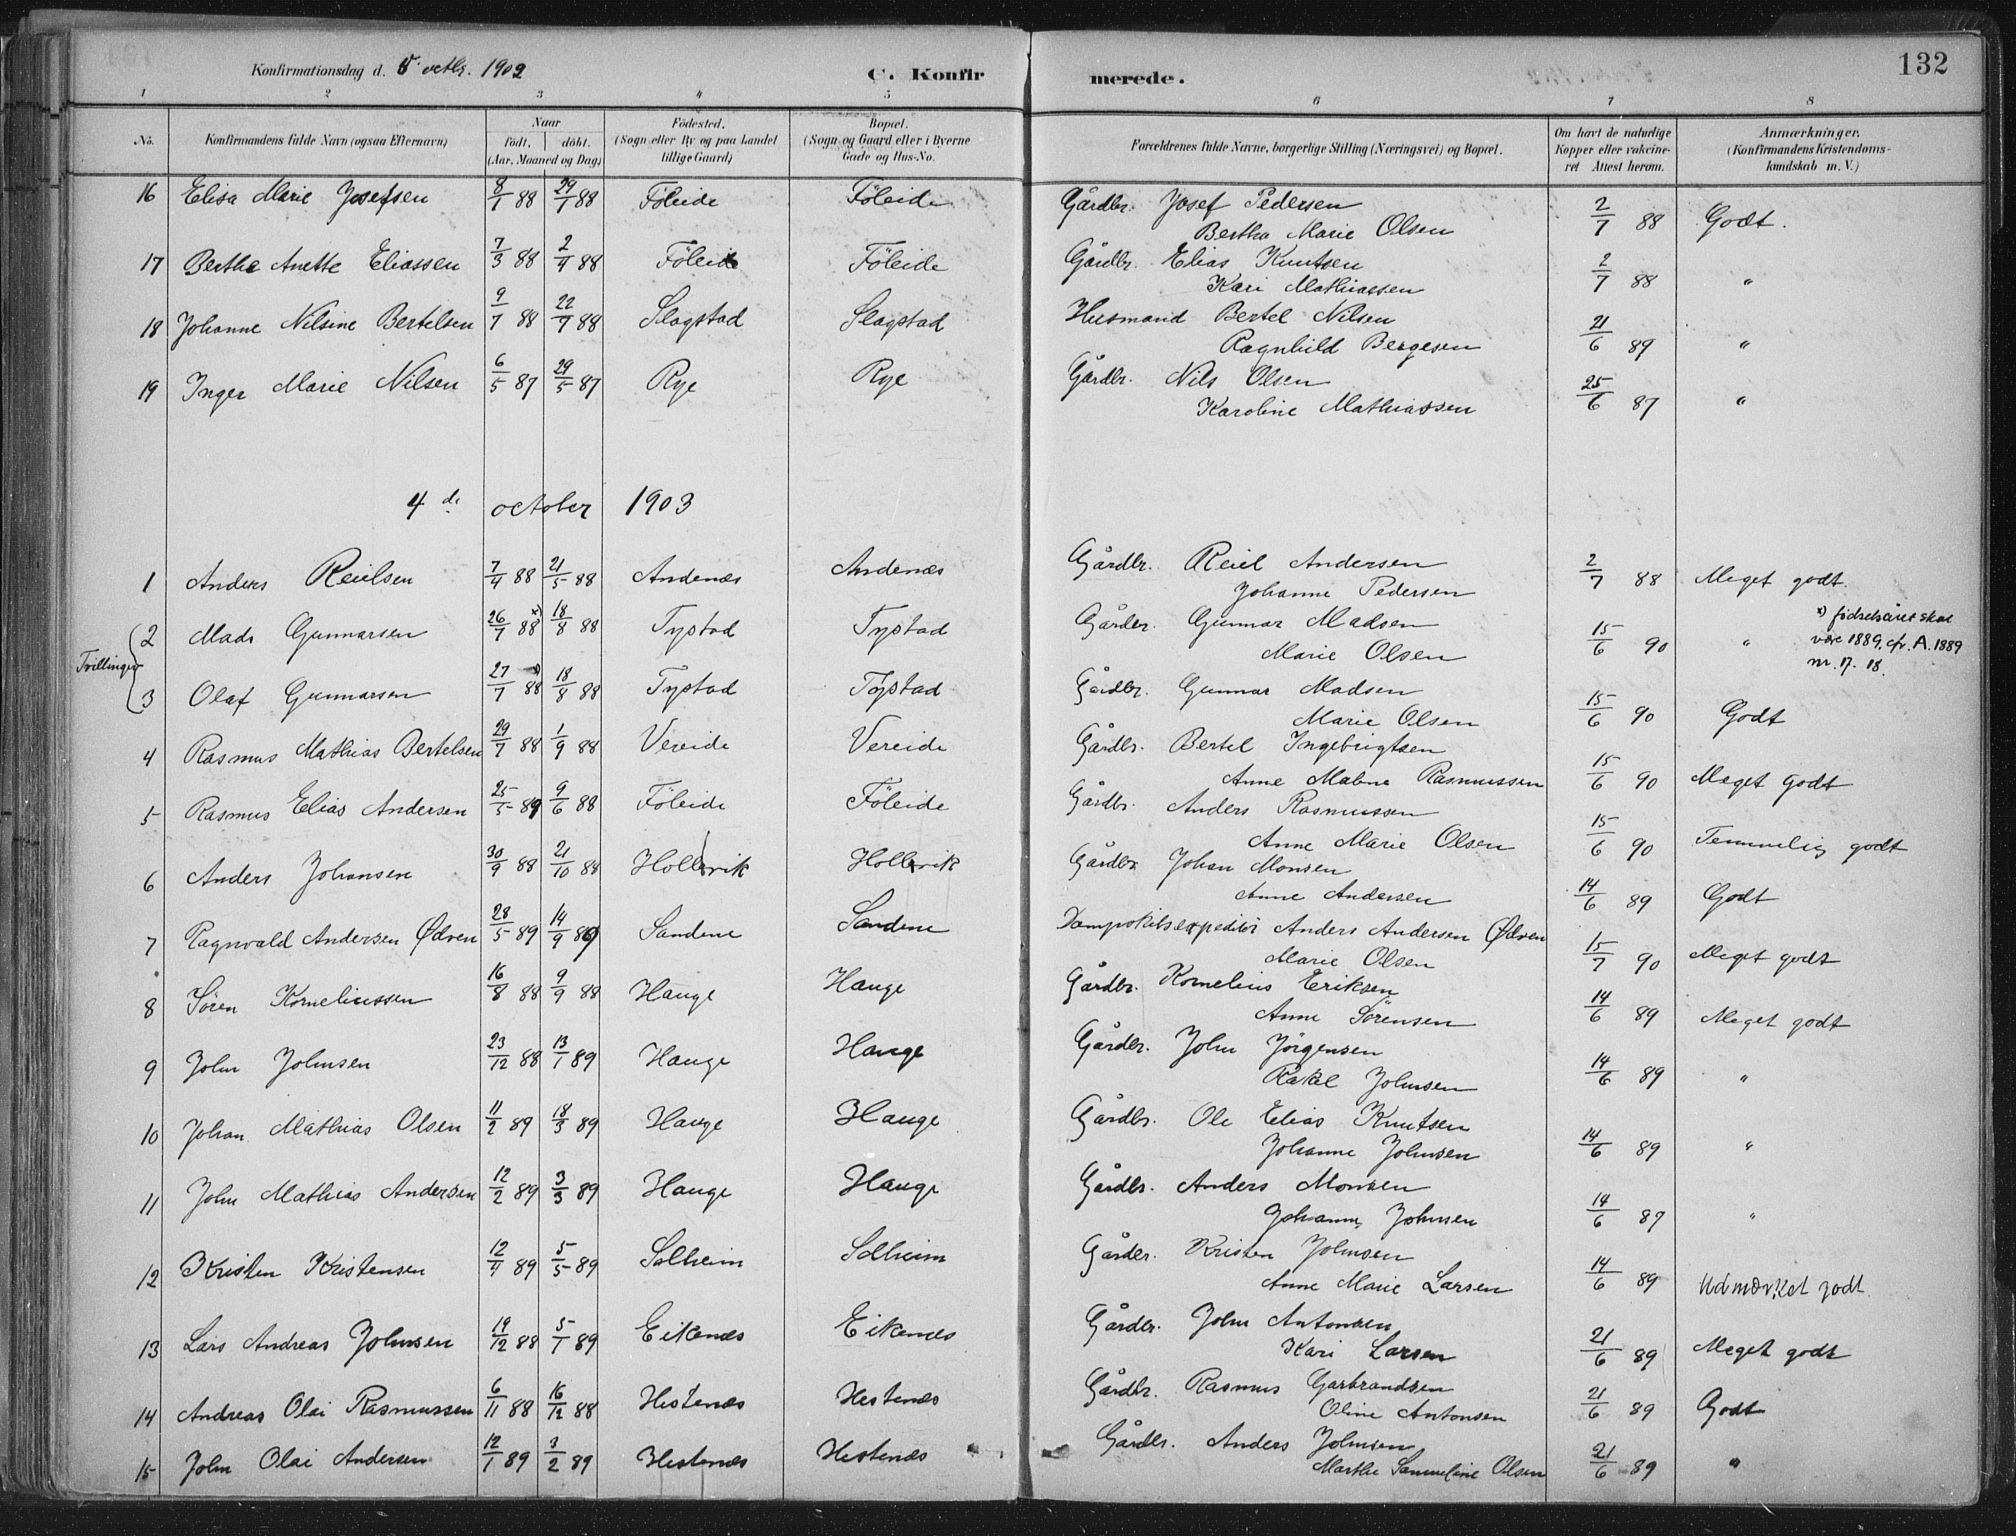 132
Konfirmationsdag d. 5 octbr. 1902
C. Konfirmerede.
1 2 3 4 5 6 7 8
No. Konfirmandens fulde Navn (ogsaa Efternavn) Naar født, døbt. (Aar, Maaned og Dag) Fødested. (Sogn eller By og paa Landet tillige Gaard) Bopæl. (Sogn og Gaard eller i Byerne Gade og Hus-No. Forældrenes fulde Navne, borgerlige Stilling (Næringsvei) og Bopæl. Om havt de naturlige Kopper eller vakcineret Attest herom. Anmærkninger. (Konfirmandens Kristendomskundskab m. V.)
16 Elisa Marie Josefsen 8/1 88 29/1 88 Föleide Föleide Gårdbr. Josef Pedersen 2/7 88 Godt.
Bertha Marie Olsen
17 Berthe Anette Eliassen 7/3 88 2/4 88 Föleide Föleide Gårdbr. Elias Knutsen 2/7 88 "
Kari Mathiassen
18 Johanne Nilsine Bertelsen 9/7 88 22/7 88 Slagstad Slagstad Husmand Bertel Nilsen 21/6 89 "
Ragnhild Bergesen
19 Inger Marie Nilsen 6/5 87 29/5 87 Rye Rye Gårdbr. Nils Olsen 25/6 87 "
Karoline Mathiassen
4de october 1903
1 Anders Reielsen 7/4 88 21/5 88 Andenæs Andenæs Gårdbr. Reiel Andersen 2/7 88 Meget godt.
Johanne Pedersen
Tvillinger
2 Mads Gunnarsen 26/7 88 x) 18/8 88 Tystad Tystad Gårdbr. Gunnar Madsen 15/6 90 " x) fødselsåret skal
Marie Olsen være 1889, cfr. A. 1889
nr. 17. 18.
3 Olaf Gunnarsen 27/7 88 18/8 88 Tystad Tystad Gårdbr. Gunnar Madsen 15/6 90 Godt
Marie Olsen
4 Rasmus Mathias Bertelsen 29/7 88 1/9 88 Vereide Vereide Gårdbr. Bertel Ingebrigtsen 15/6 90 Meget godt
Anne Malene Rasmussen
5 Rasmus Elias Andersen 25/5 89 9/6 88 Föleide Föleide Gårdbr. Anders Rasmussen 15/6 90 Temmelig godt
Anne Marie Olsen
6 Anders Johansen 30/9 88 21/10 88 Hollevik Hollevik Gårdbr. Johan Monsen 14/6 89 Godt
Anne Andersen
7 Ragnvald Andersen Ødven 28/5 89 14/9 89 Sandene Sandene Dampskibsexpeditör Anders Andersen Ødven 15/7 90 Meget godt
Marie Olsen
8 Søren Korneliussen 16/8 88 9/9 88 Hauge Hauge Gårdbr. Kornelius Eriksen 14/6 89 Meget godt
Anne Sörensen
9 John Johnsen 23/12 88 13/1 89 Hauge Hauge Gårdbr. John Jörgensen 14/6 89 "
Rakel Johnsen
10 Johan Mathias Olsen 11/2 89 18/3 89 Hauge Hauge Gårdbr. Ole Elias Knutsen 14/6 89 "
Johanne Johnsen
11 John Mathias Andersen 12/2 89 3/3 89 Hauge Hauge Gårdbr. Anders Monsen 14/6 89 "
Johanne Johnsen
12 Kristen Kristensen 12/4 89 5/5 89 Solheim Solheim Gårdbr. Kristen Johnsen 14/6 89 Udmærket godt.
Anne Marie Larsen
13 Lars Andreas Johnsen 19/12 88 5/1 89 Eikenæs Eikenæs Gårdbr. John Antonsen 21/6 89 Meget godt
Kari Larsen
14 Andreas Olai Rasmussen 6/11 88 16/12 88 Hestenæs Hestenæs Gårdbr. Rasmus Garbrandsen 21/6 89 Godt
Oline Antonsen
15 John Olai Andersen 12/1 89 3/2 89 Hestenæs Hestenæs Gårdbr. Anders Johnsen 21/6 89 "
Marthe Sammeline Olsen